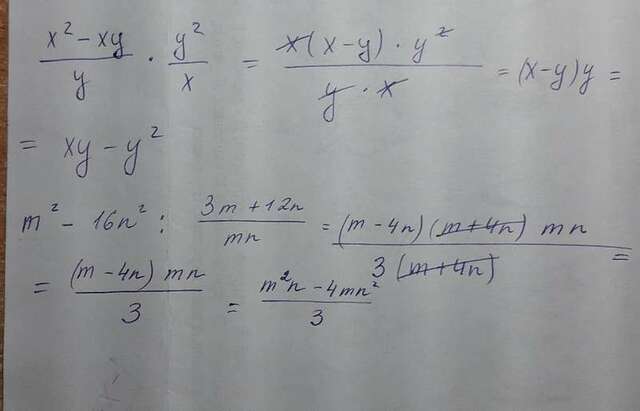 (x² - xy)/y · y²/x = (x(x-y) · y²)/(y · x) = (x-y)y =
= xy - y²
m² - 16n² : (3m + 12n)/(mn) = ((m - 4n)(m + 4n) mn)/(3(m + 4n)) =
= ((m - 4n) mn)/3 = (m²n - 4mn²)/3